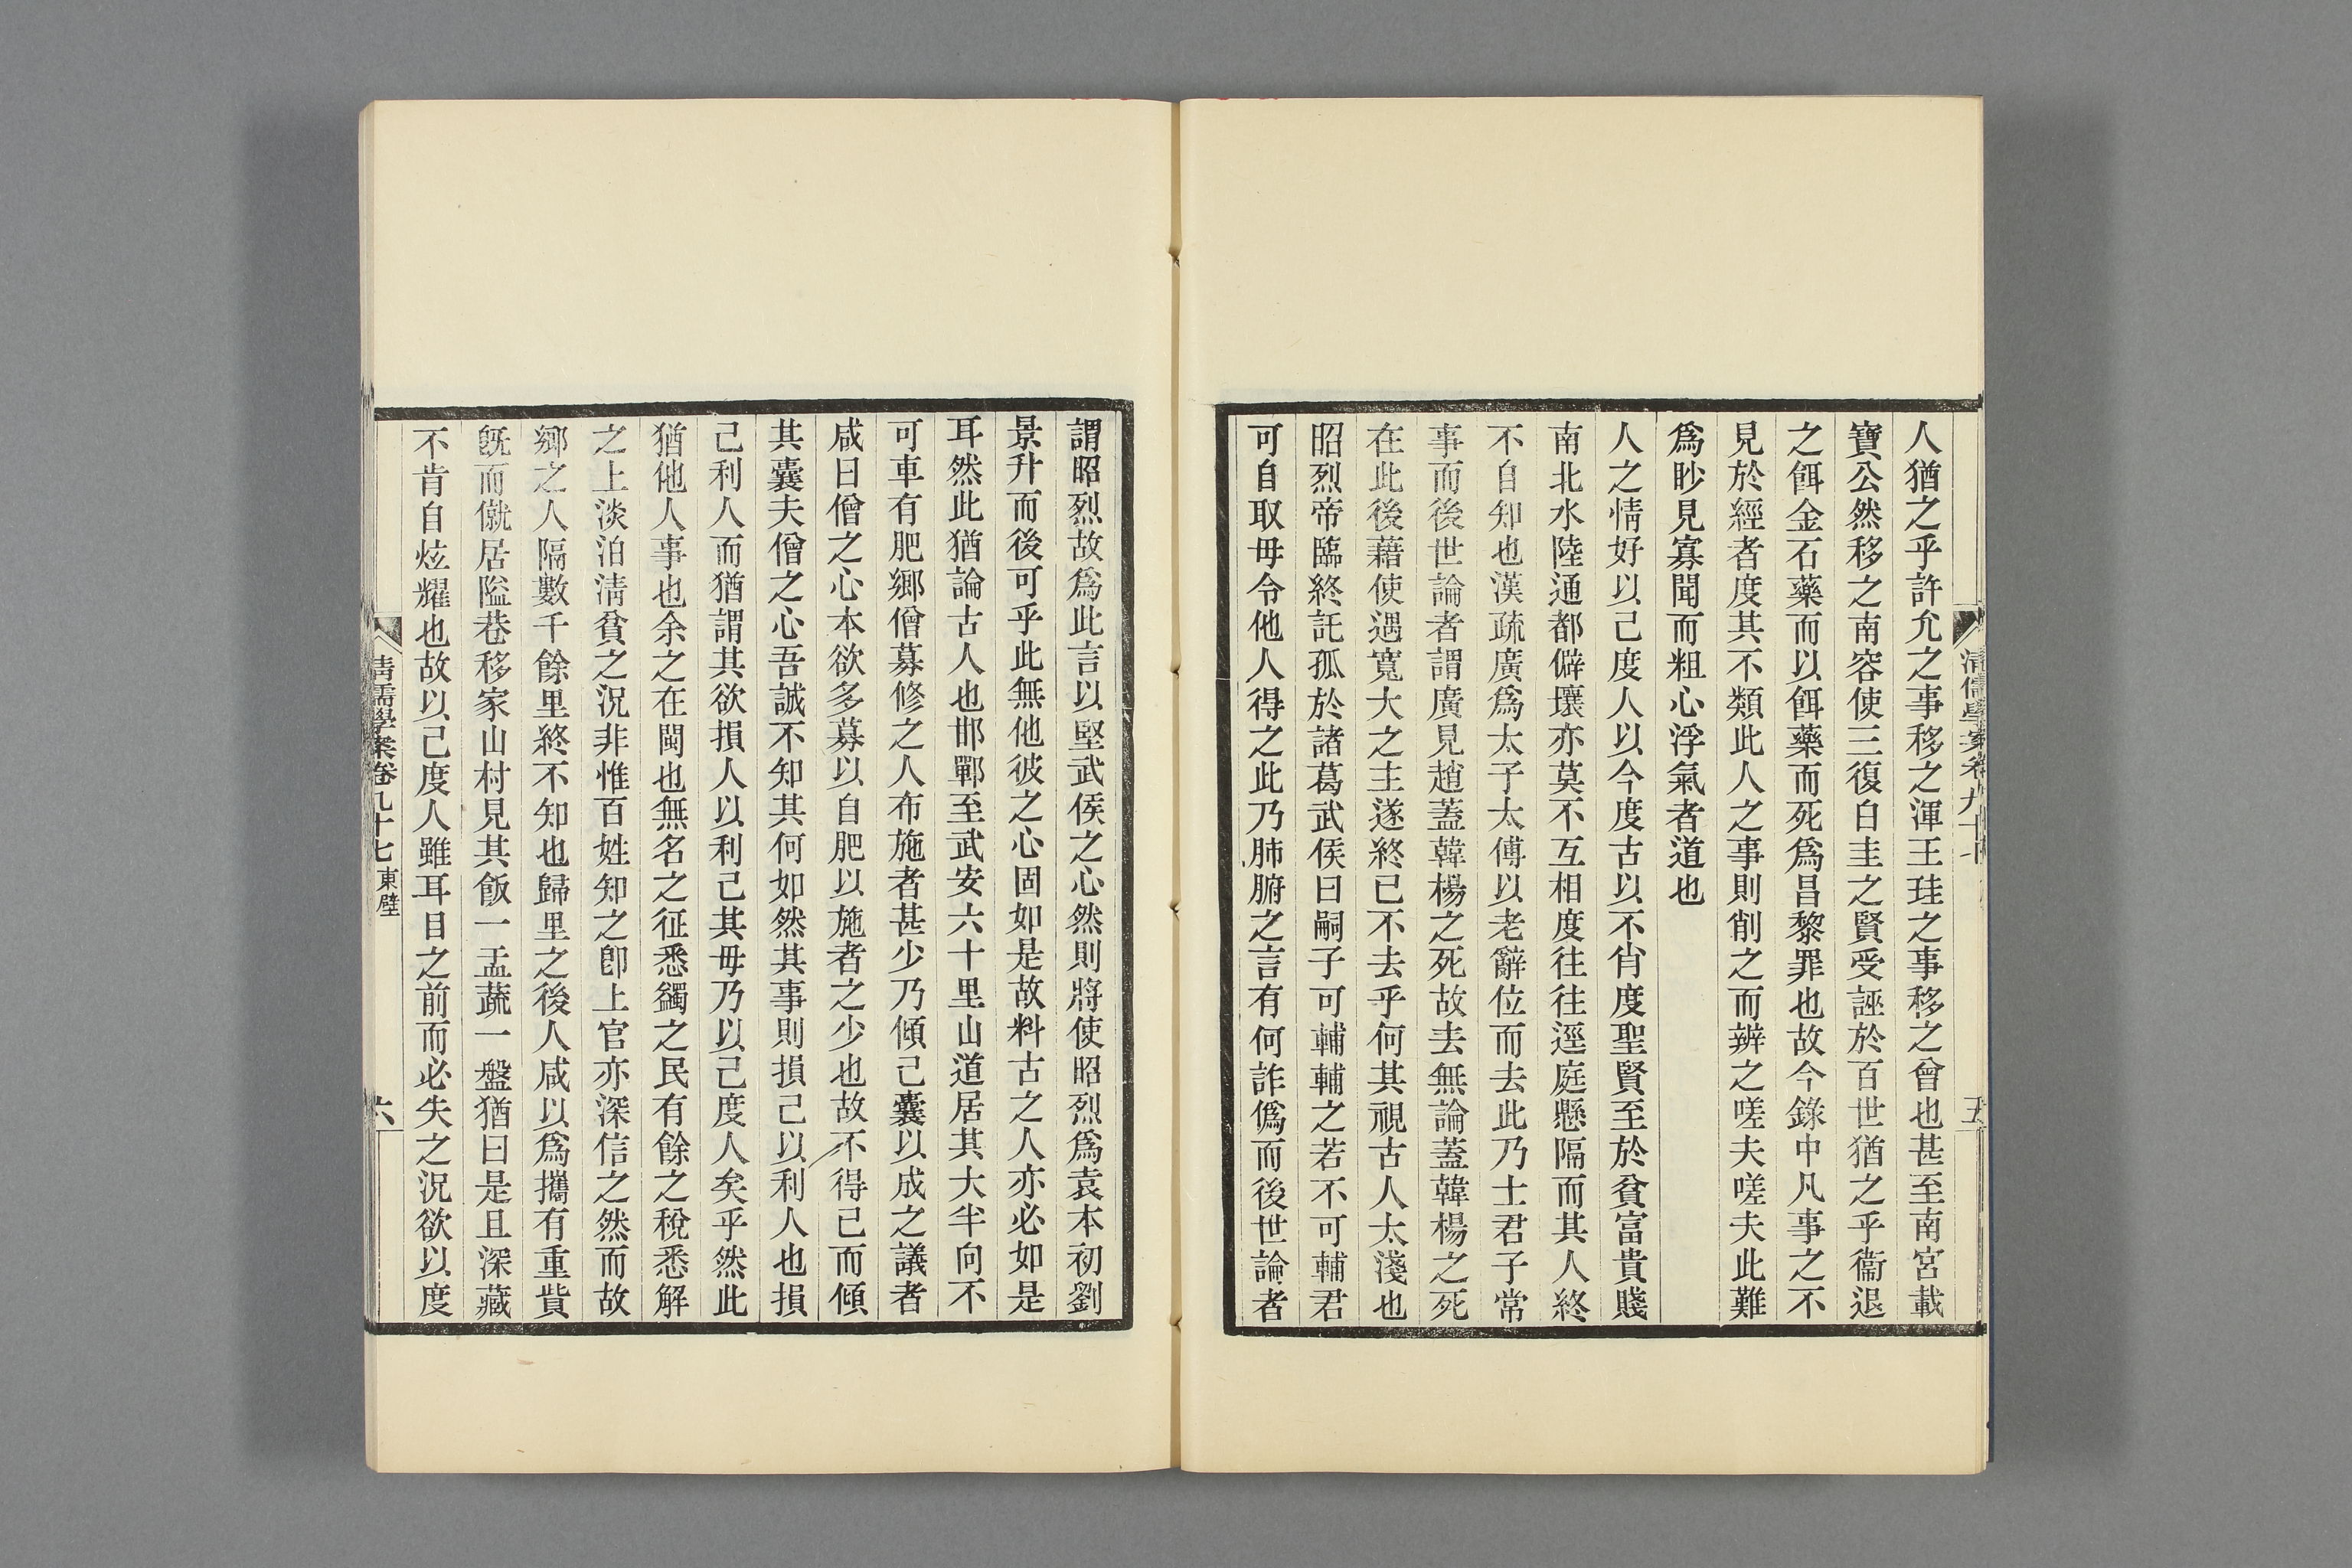 清儒學案卷九十七
五
人猶之乎許允之事移之渾王珪之事移之曾也甚至南宮載
寶公然移之南容使三復白圭之賢受誣於百世猶之乎衞退
之餌金石藥而以餌藥而死爲昌黎罪也故今錄中凡事之不
見於經者度其不類此人之事則削之而辨之嗟夫嗟夫此難
爲眇見寡聞而粗心浮氣者道也
人之情好以己度人以今度古以不肖度聖賢至於貧富貴賤
南北水陸通都僻壤亦莫不互相度往往逕庭懸隔而其人終
不自知也漢疏廣爲太子太傅以老辭位而去此乃士君子常
事而後世論者謂廣見趙蓋韓楊之死故去無論蓋韓楊之死
在此後藉使遇寬大之主遂終已不去乎何其視古人太淺也
昭烈帝臨終託孤於諸葛武侯曰嗣子可輔輔之若不可輔君
可自取毋令他人得之此乃肺腑之言有何詐僞而後世論者
謂昭烈故爲此言以堅武侯之心然則將使昭烈爲袁本初劉
景升而後可乎此無他彼之心固如是故料古之人亦必如是
耳然此猶論古人也邯鄲至武安六十里山道居其大半向不
可車有肥鄉僧募修之人布施者甚少乃傾己囊以成之議者
咸曰僧之心本欲多募以自肥以施者之少也故不得已而傾
其囊夫僧之心吾誠不知其何如然其事則損己以利人也損
己利人而猶謂其欲損人以利己其毋乃以己度人矣乎然此
猶他人事也余之在閩也無名之征悉蠲之民有餘之稅悉解
之上淡泊清貧之況非惟百姓知之卽上官亦深信之然而故
鄉之人隔數千餘里終不知也歸里之後人咸以爲攜有重貲
旣而僦居隘巷移家山村見其飯一盂蔬一盤猶曰是且深藏
不肯自炫耀也故以己度人雖耳目之前而必失之況欲以度
清儒學案卷九十七 東壁
六